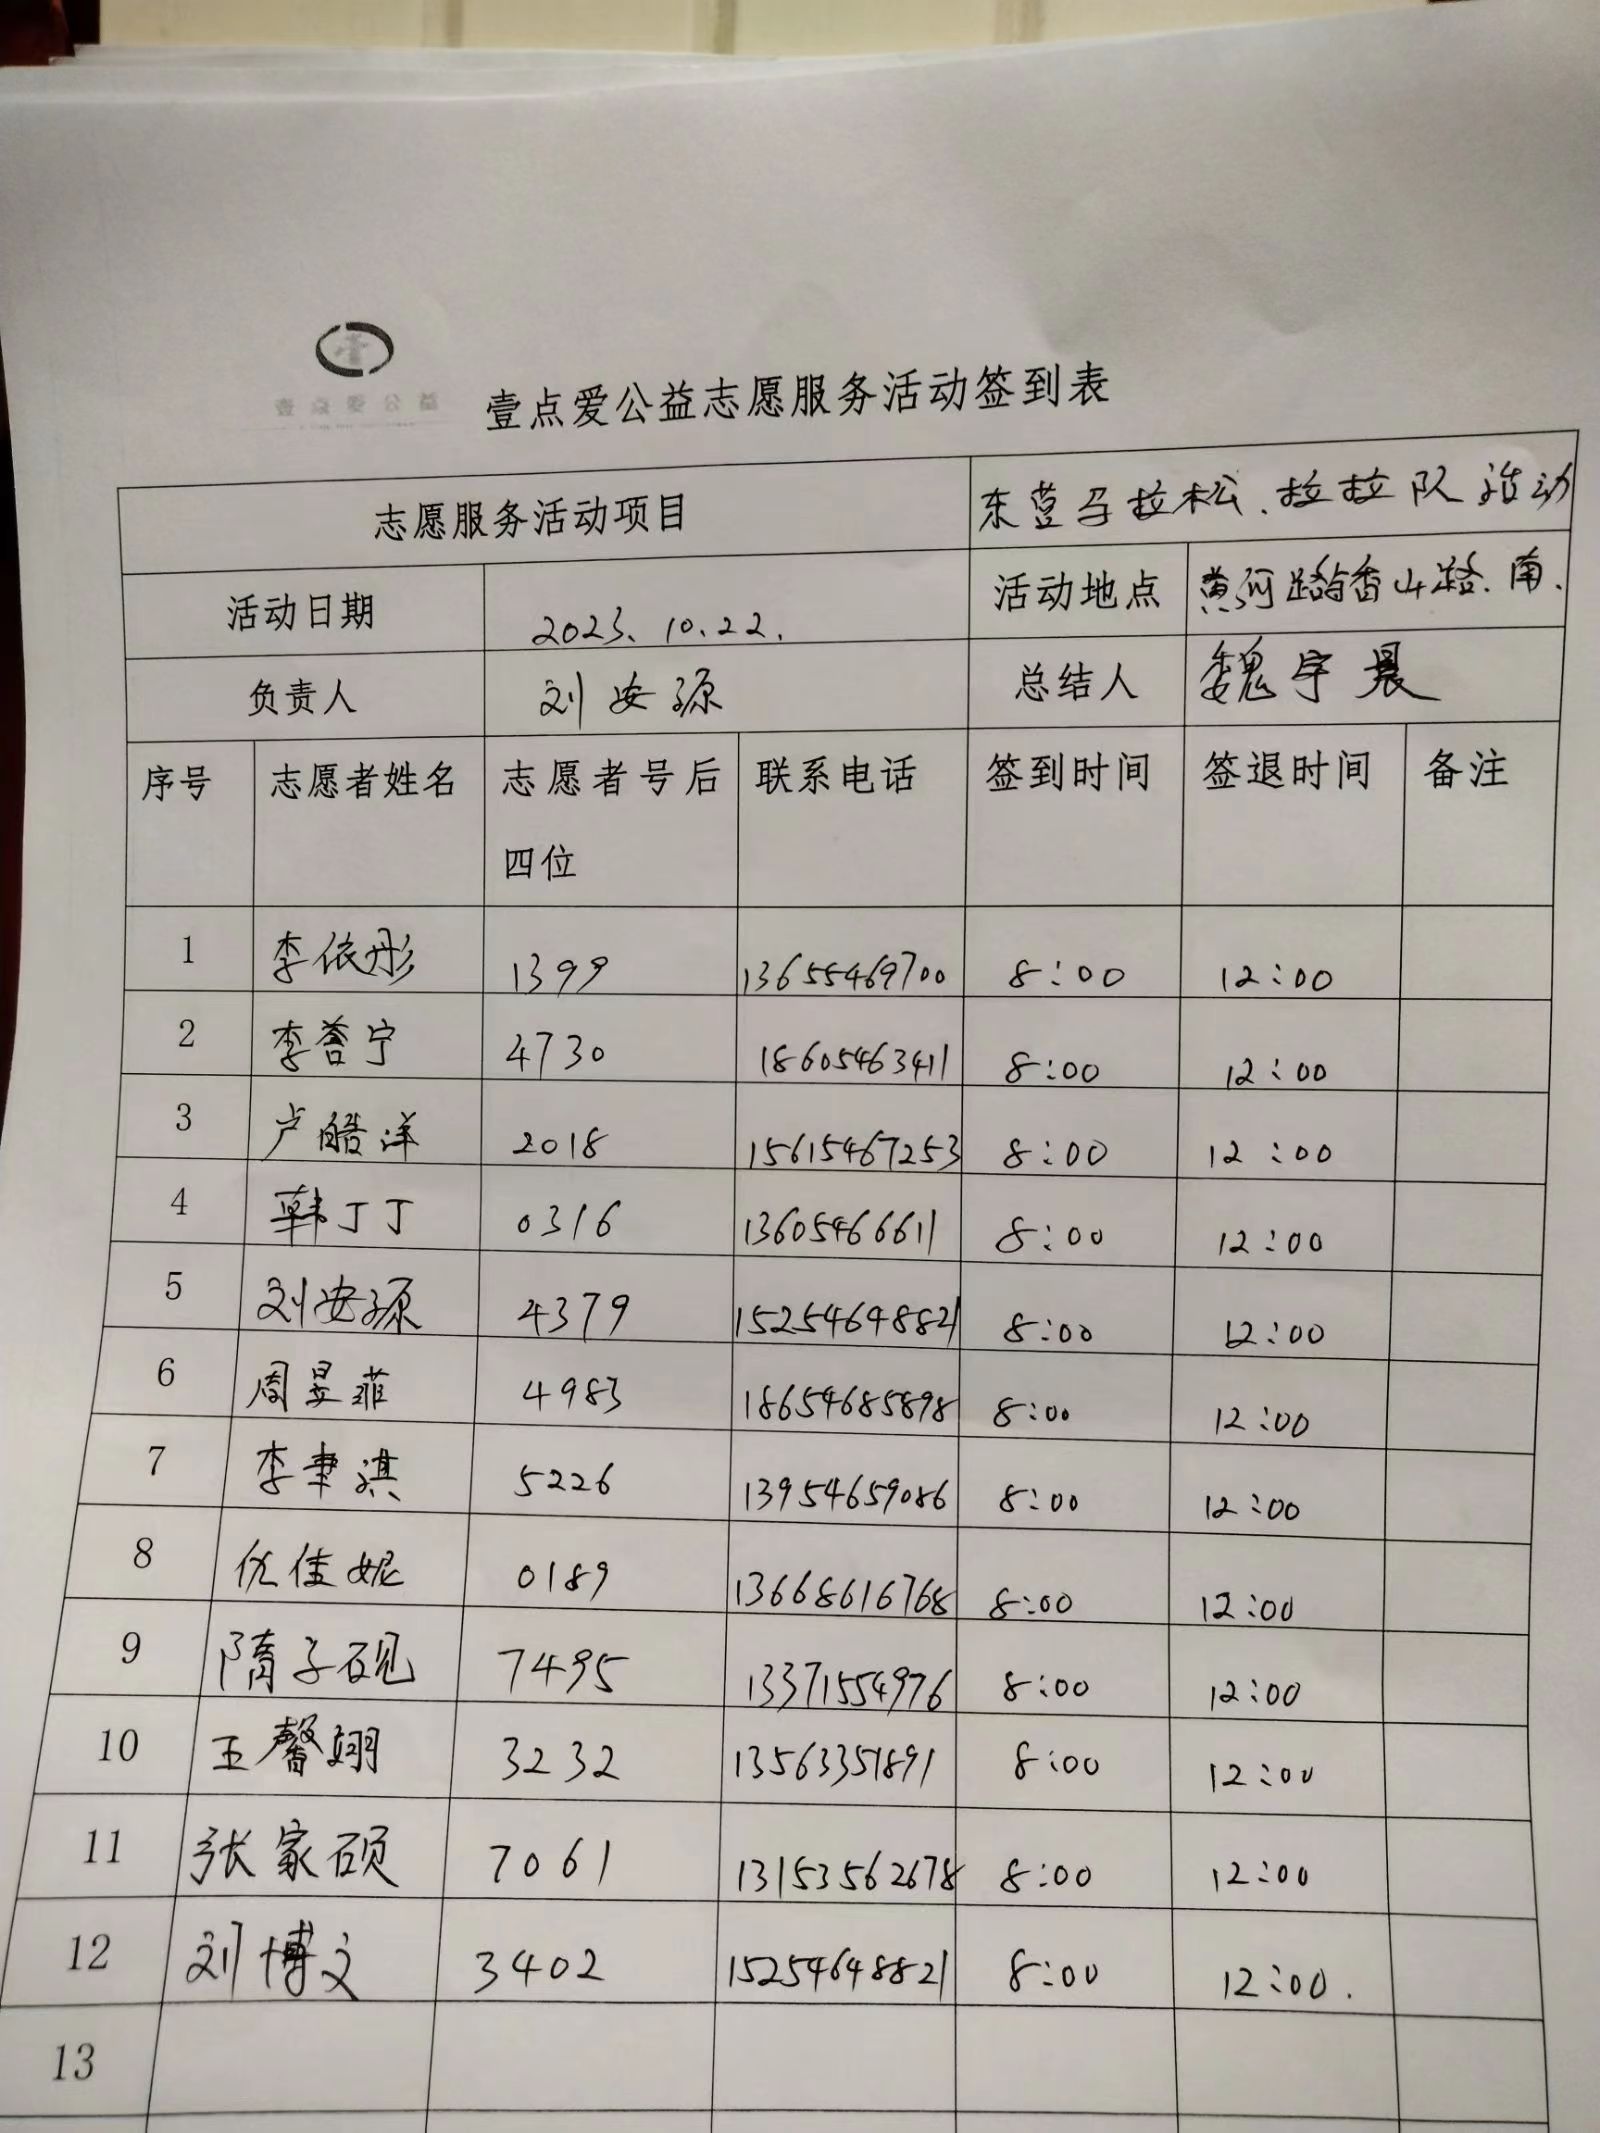 壹点爱公益
壹点爱公益志愿服务活动签到表
志愿服务活动项目 东营马拉松.拉拉队活动
活动日期 2023.10.22. 活动地点 黄河路香山路.南.
负责人 刘安源 总结人 魏宇晨
序号 志愿者姓名 志愿者号后 联系电话 签到时间 签退时间 备注
四位
1 李依彤 1399 13655469700 8:00 12:00
2 李誉宁 4730 18605463411 8:00 12:00
3 卢皓洋 2018 15615467253 8:00 12:00
4 韩丁丁 0316 13605466611 8:00 12:00
5 刘安源 4379 15254648821 8:00 12:00
6 周昱菲 4983 18654685898 8:00 12:00
7 李聿淇 5226 13954659086 8:00 12:00
8 佳妮 0189 13668616768 8:00 12:00
9 隋子砚 7495 13371554976 8:00 12:00
10 王馨翊 3232 13563351891 8:00 12:00
11 张家硕 7061 13153562678 8:00 12:00
12 刘博文 3402 15254648821 8:00 12:00.
13